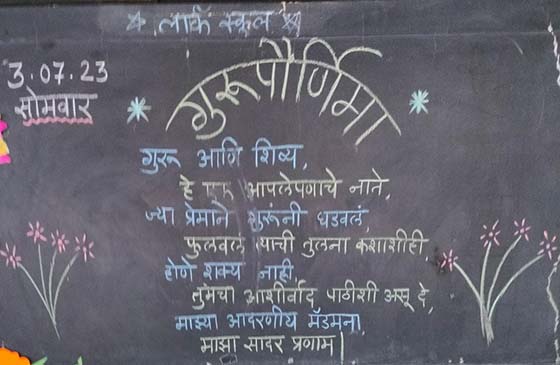 * लार्क स्कूल *
3.07.23
सोमवार
* गुरूपौर्णिमा *
गुरू आणि शिष्य,
हे एक आपलेपणाचे नाते,
ज्या प्रेमाने गुरूंनी घडवलं,
फुलवलं याची तुलना कशाशीही,
होणे शक्य नाही,
तुमचा आशीर्वाद पाठीशी असू दे,
माझ्या आदरणीय मॅडमना,
माझा सादर प्रणाम|